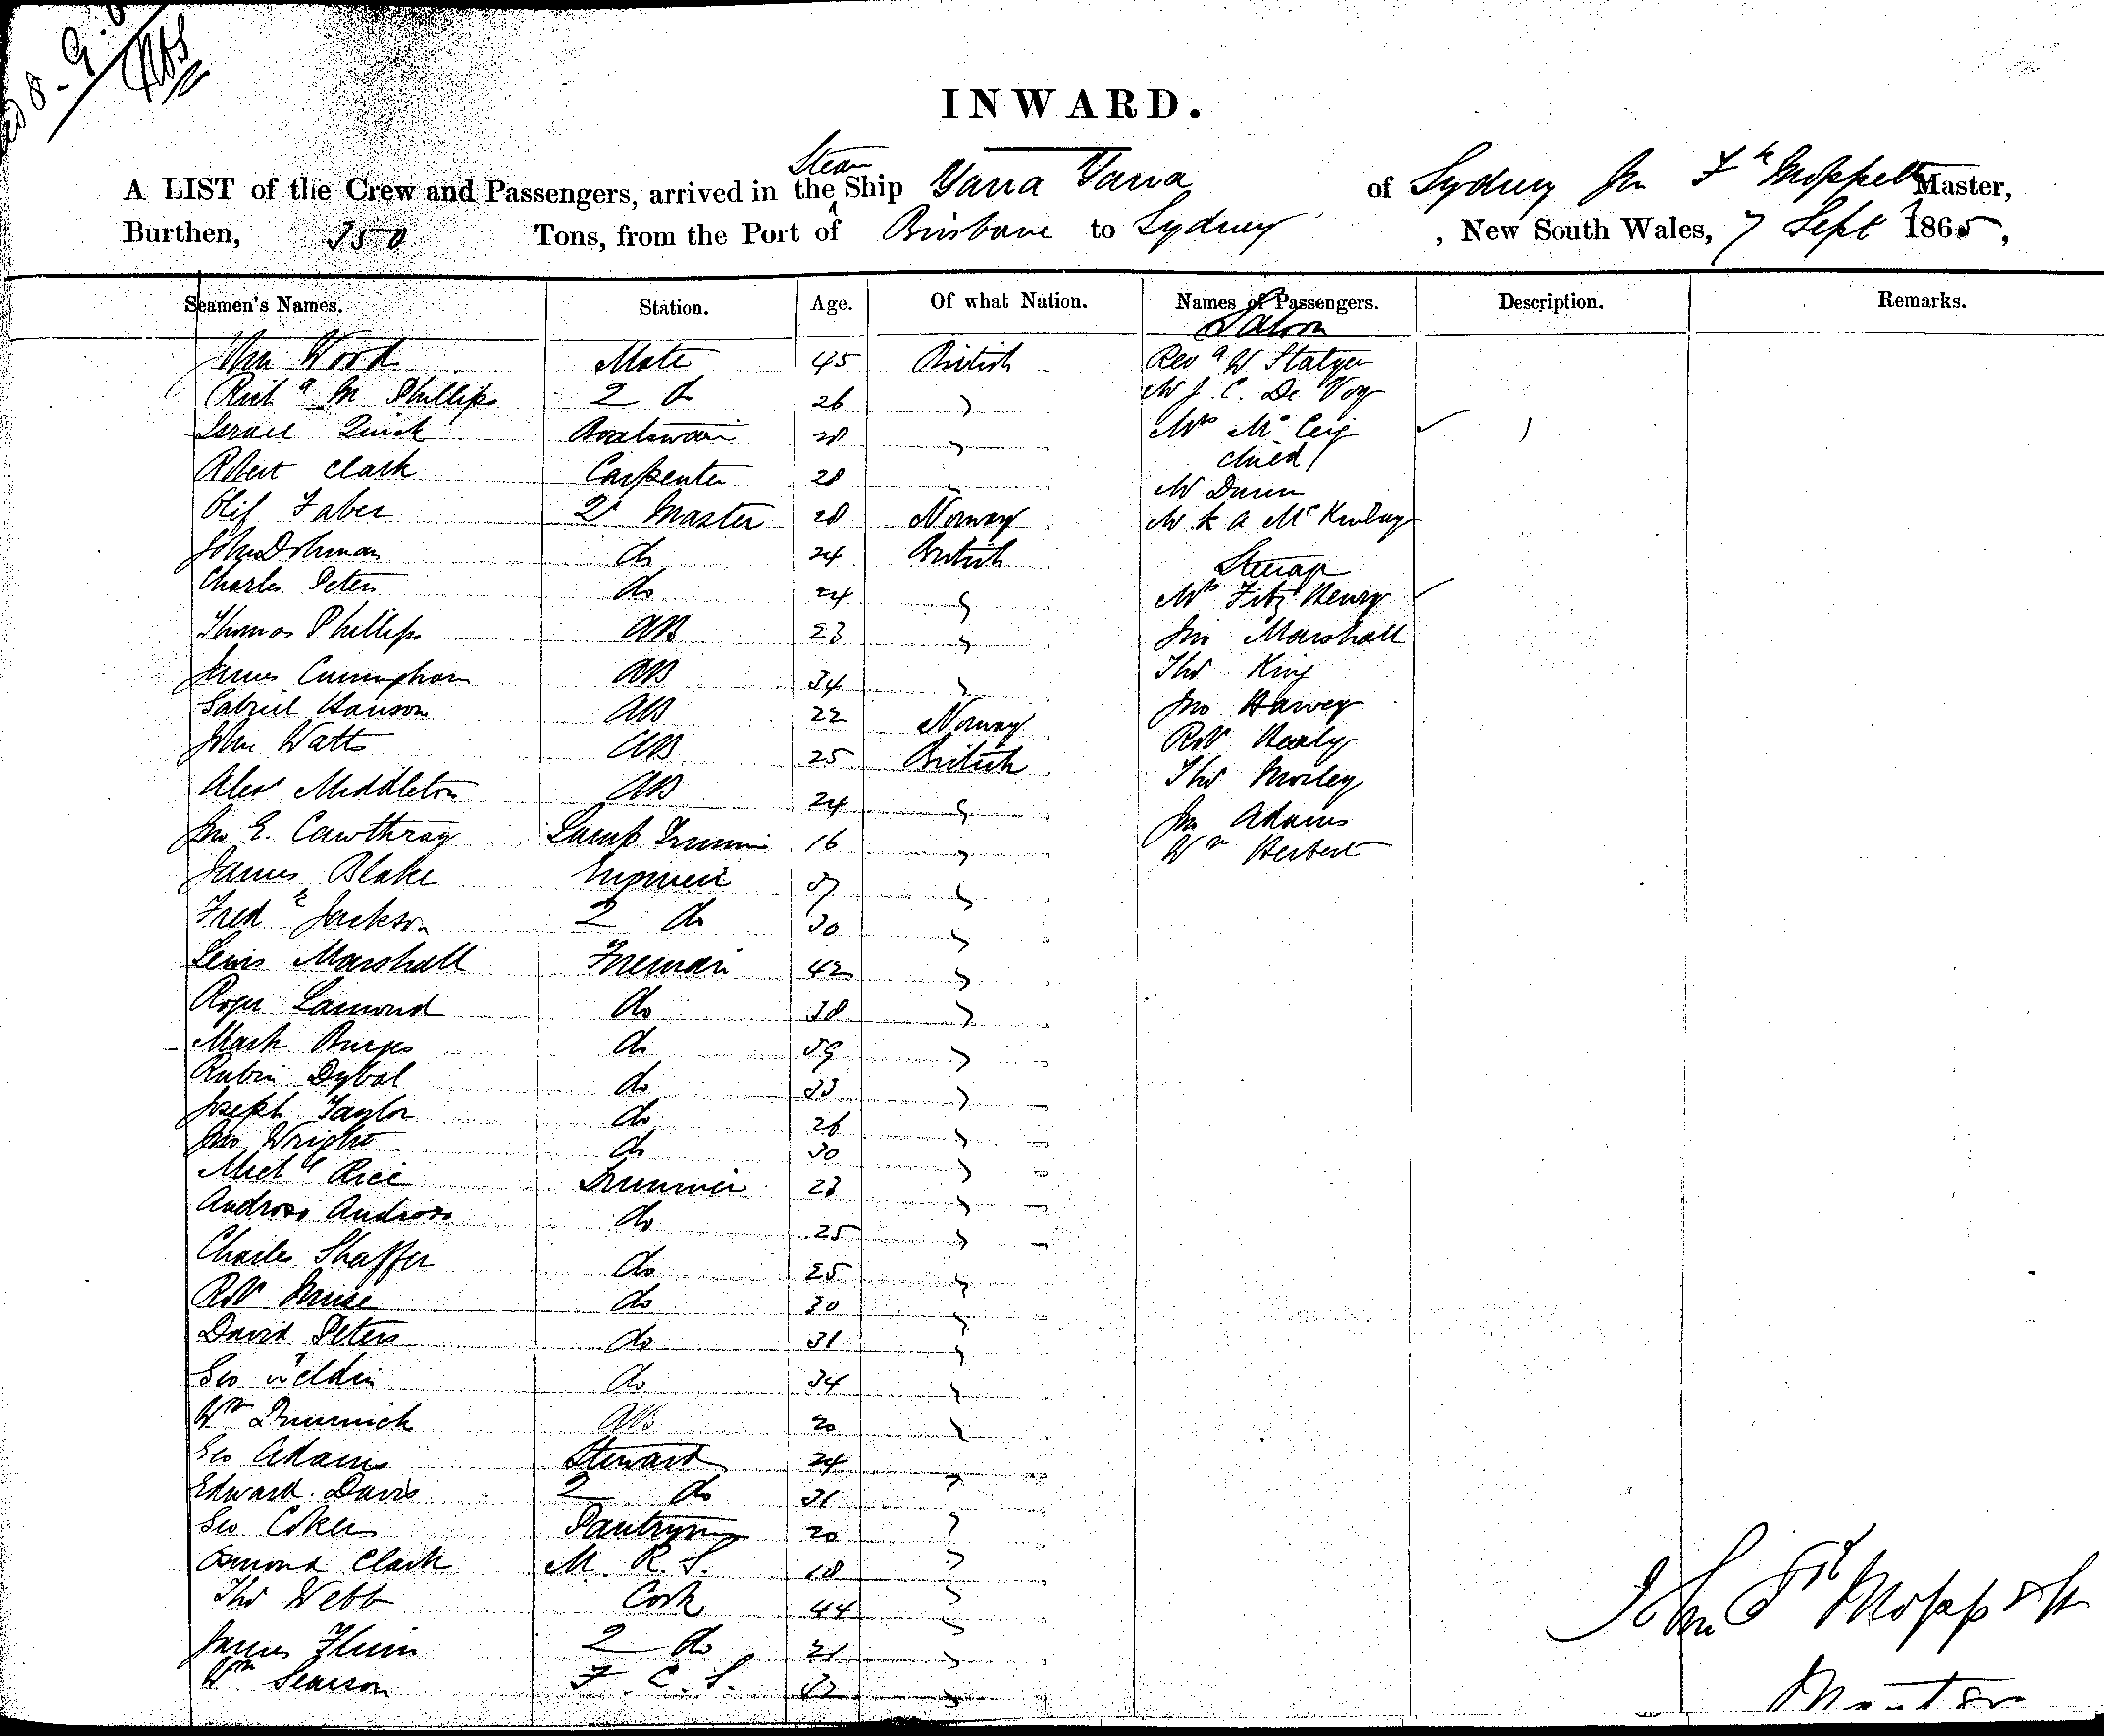 INWARD.
A LIST of the Crew and Passengers, arrived in the Steam Ship Yarra Yarra of Sydney Jn Fk Moppett Master,
Burthen, 350 Tons, from the Port of Brisbane to Sydney, New South Wales, 7 Sept 1865,
Seamen's Names. Station. Age. Of what Nation. Names of Passengers. Description. Remarks.
Saloon
Wood Mate 45 British Revd W
Richd M Phillips 2 do 26 " Mr J. C. De Voy
Israel Quick Boatswain 28 " Mrs
Robert Clark Carpenter 28 " child
Mr Dunn
Olif Faber Qr Master 28 Norway Mr
John Dohman do 24 British Steerage
Charles Peters do 24 " Mrs Fitz Henry
Thomas Phillips AB 23 " Jno Marshall
James Cuningham AB 34 " Thos King
Gabriel Hanson AB 22 Norway Jno Harvey
John Watts AB 25 British Robt Healy
Alexr Middleton AB 24 " Thos Morley
Jno E. Cawthray Lamp Trimmer 16 " Jno Adams
Wm Herbert
James Blake Engineer 37 "
Fredk Jackson 2 do 30 "
Lewis Marshall Fireman 42 "
Roger Lamond do 38 "
Mark Burges do 39 "
Rubin Dybal do 33 "
Joseph Taylor do 26 "
Jno Wright do 30 "
Michl Rice Trimmer 23 "
Andrew do 25 "
Charles Shaffer do 25 "
Robt do 30 "
David Peters do 31 "
Geo do 34 "
Wm AB 20 "
Geo Adams Steward 24 "
Edward Davis 2 do 31 "
Geo Coker Pantryman 20 "
Osmond Clark M. R. S. 18 "
Thos Webb Cook 44 "
James 2 do 21 "
Wm F. C. S. 32 "
John Fk Moppett
Master